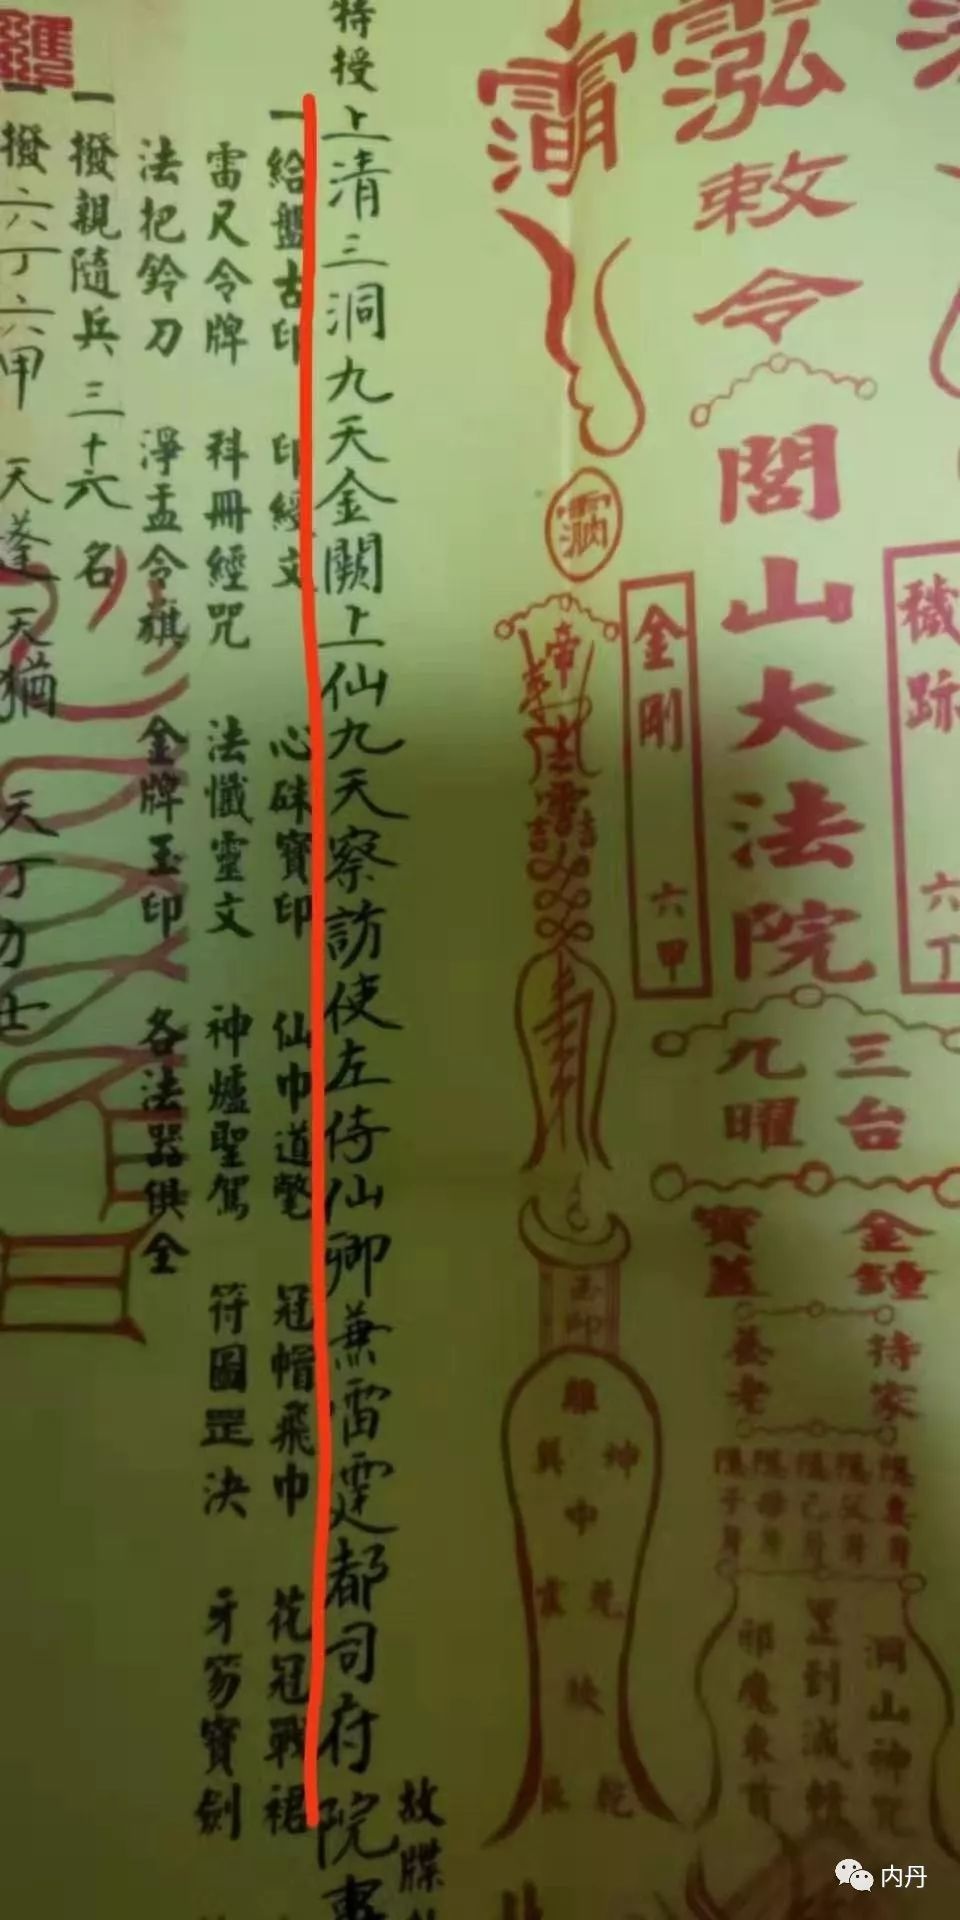 泓
敕令
閭山大法院
三台
九曜
金鐘
寶蓋
穢跡
六丁
金剛
六甲
帝
玉印
離
巽 坤
中
震 兌
艮 乾
洞山神咒
邪魔束首
故牒
特授上清三洞九天金闕上仙九天察訪使左侍仙卿兼雷霆都司府院事
一給盤古印 印經文 心硃寶印 仙巾道氅 冠帽飛巾 花冠戰裙
雷尺令牌 科冊經咒 法懺靈文 神爐聖駕 符圖罡決 牙笏寶劍
法把鈴刀 淨盂令旗 金牌玉印 各法器俱全
一撥親隨兵三十六名
一撥六丁六甲 天蓬天猶 天丁力士
内丹